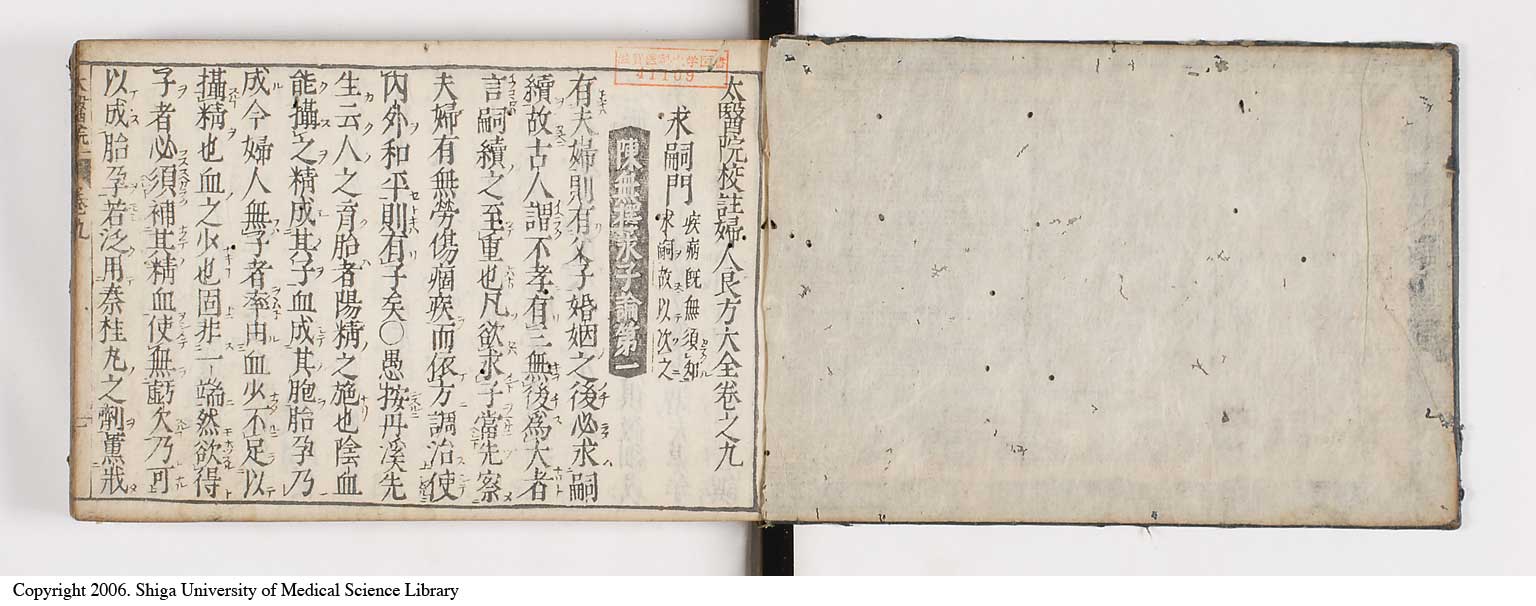 太醫院校註婦人良方大全卷之九
求嗣門
疾病既無須知
求嗣故以次之
陳無擇求子論第一
有夫婦則有父子婚姻之後必求嗣
續故古人謂不孝有三無後爲大者
言嗣續之至重也凡欲求子當先察
夫婦有無勞傷痼疾而依方調治使
内外和平則有子矣〇愚按丹溪先
生云人之育胎者陽精之施也陰血
能攝之精成其子血成其胞胎孕乃
成今婦人無子者率由血少不足以
攝精也血之少也固非一端然欲得
子者必須補其精血使無虧欠乃可
以成胎孕若泛用秦桂丸之劑薰戕
41109
Copyright 2006. Shiga University of Medical Science Library